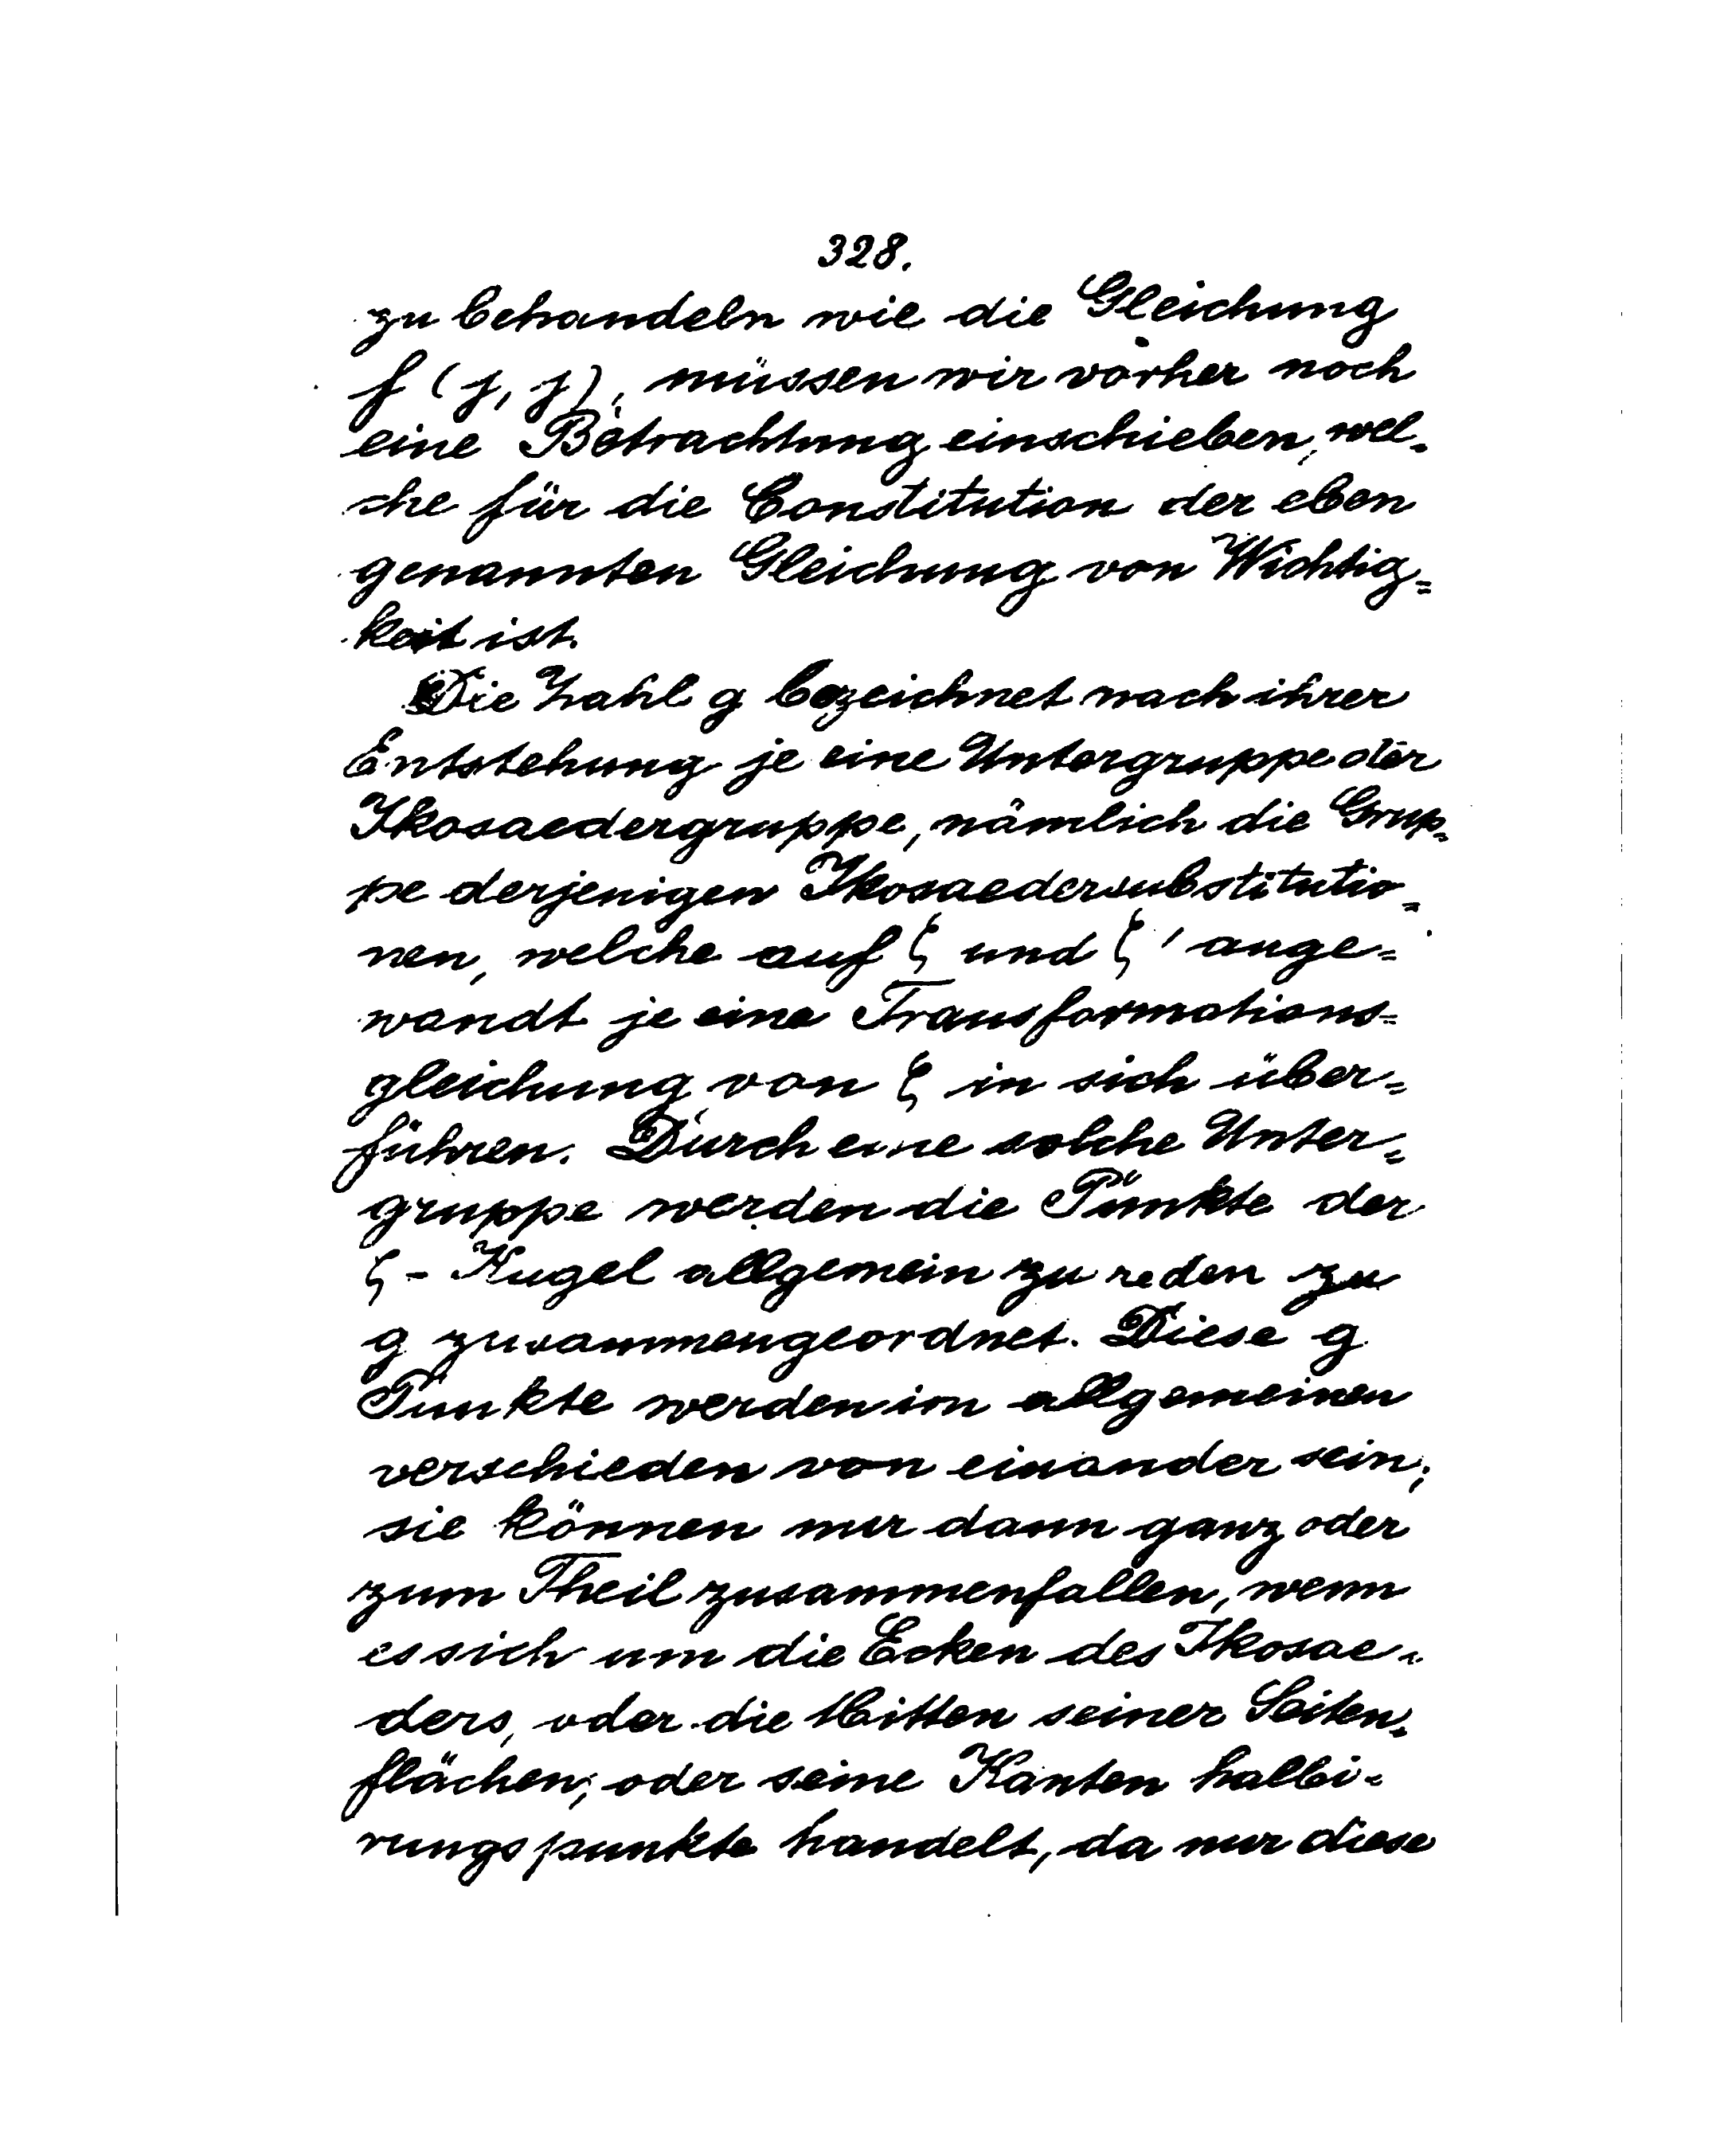 328.
zu behandeln wie die Gleichung
f (j, j), müssen wir vorher noch
eine Betrachtung einschieben, wel-
che für die Constitution der eben
genannten Gleichung von Wichtig=
keit ist.
Die Zahl g bezeichnet nach ihrer
Entstehung je eine Untergruppe der
Ikosaedergruppe, nämlich die Grup=
pe derjenigen Ikosaedersubstitutio=
nen, welche auf ζ und ζ' ange=
wandt je eine Transformations=
gleichung von ζ in sich über=
führen. Durch eine solche Unter=
gruppe werden die Punkte der
ζ - Kugel allgemein zu reden zu
g zusammengeordnet. Diese g
Punkte werden im allgemeinen
verschieden von einander sein;
sie können nur dann ganz oder
zum Theil zusammenfallen, wenn
es sich um die Ecken des Ikosae=
ders, oder die Mitten seiner Seiten=
flächen, oder seine Kanten halbi=
rungspunkte handelt, da nur diese